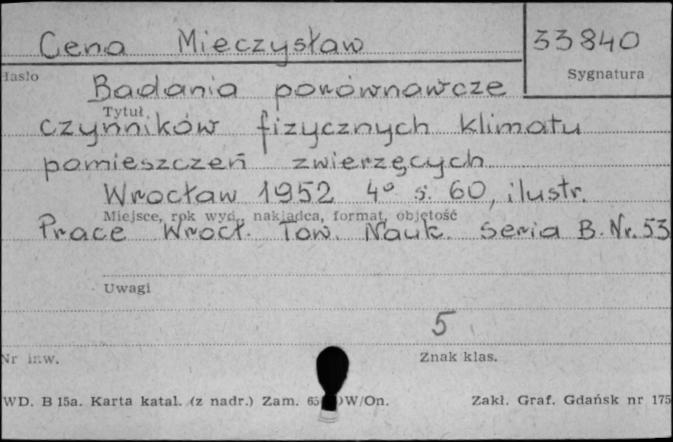 Cena Mieczysław 33840
Hasło Sygnatura
Badania porównawcze
Tytuł
czynników fizycznych klimatu
pomieszczeń zwierzęcych
Wrocław 1952 4° s. 60, ilustr.
Miejsce, rok wyd., nakładca, format, objętość
Prace Wrocł. Tow. Nauk. Seria B. Nr. 53
Uwagi
5
Nr inw. Znak klas.
WD. B 15a. Karta katal. (z nadr.) Zam. W/On. Zakł. Graf. Gdańsk nr 175